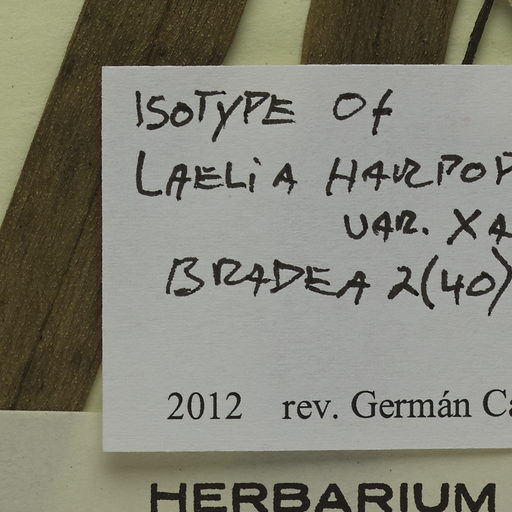 ISOTYPE Of
LAELIA HARPOP
VAR. XA
BRADEA 2(40)
2012 rev. Germán Ca
HERBARIUM